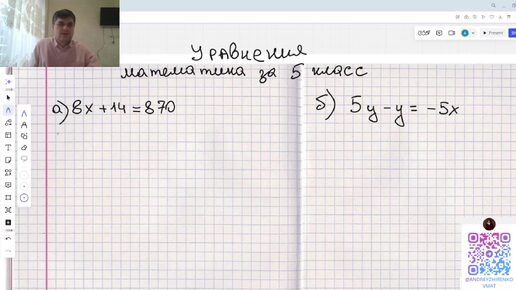 Уравнения
математика за 5 класс
а) 8x + 14 = 870
б) 5y - y = -5x
Present
@ANDREYZHIRENKO
VMAT